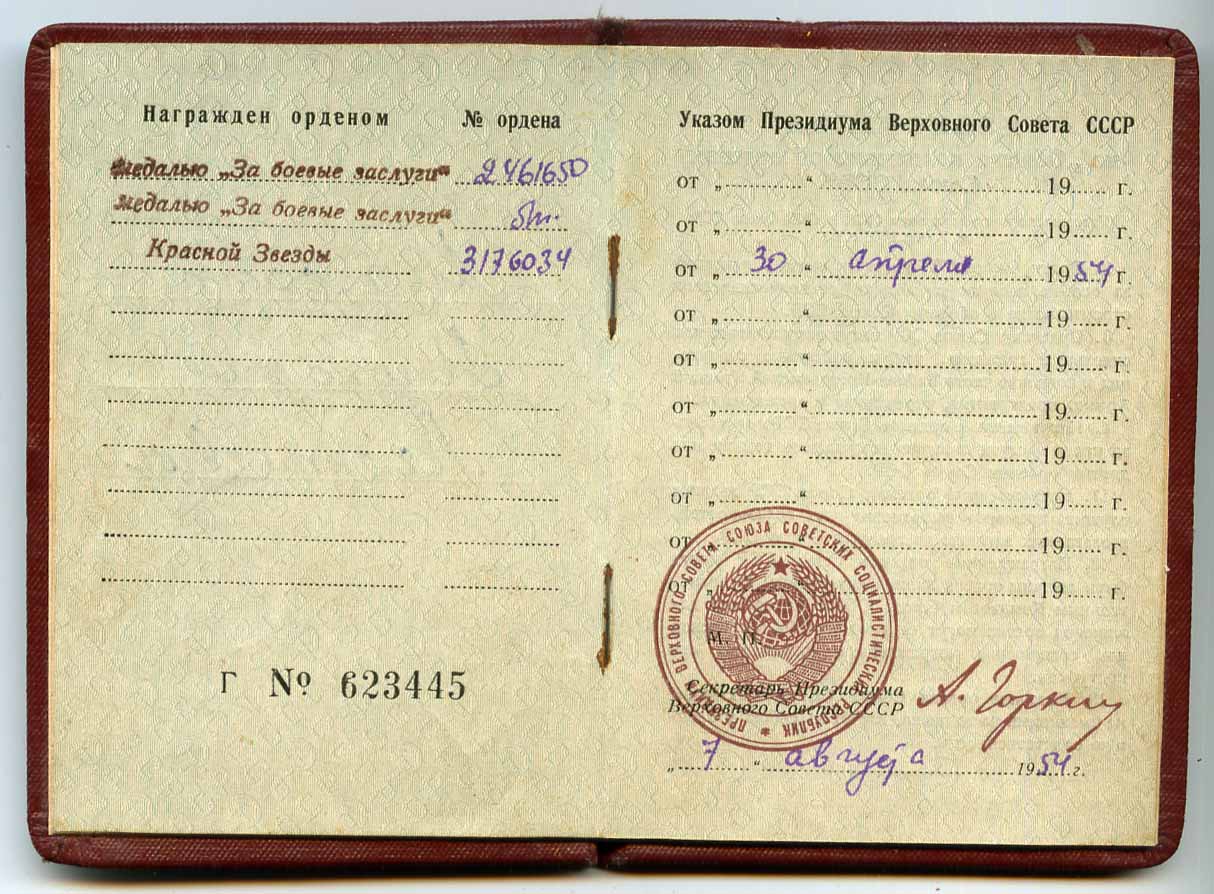 Награжден орденом № ордена
медалью „За боевые заслуги“ 2461650
медалью „За боевые заслуги“ бн.
Красной Звезды 3176034
Г № 623445
Указом Президиума Верховного Совета СССР
от „ “ 19 г.
от „ “ 19 г.
от „ 30 “ апреля 1954 г.
от „ “ 19 г.
от „ “ 19 г.
от „ “ 19 г.
от „ “ 19 г.
от „ “ 19 г.
от „ “ 19 г.
от „ “ 19 г.
ПРЕЗИДИУМ ВЕРХОВНОГО СОВЕТА СОЮЗА СОВЕТСКИХ СОЦИАЛИСТИЧЕСКИХ РЕСПУБЛИК
М. П.
Секретарь Президиума
Верховного Совета СССР А. Горкин
„ 7 “ августа 1954 г.